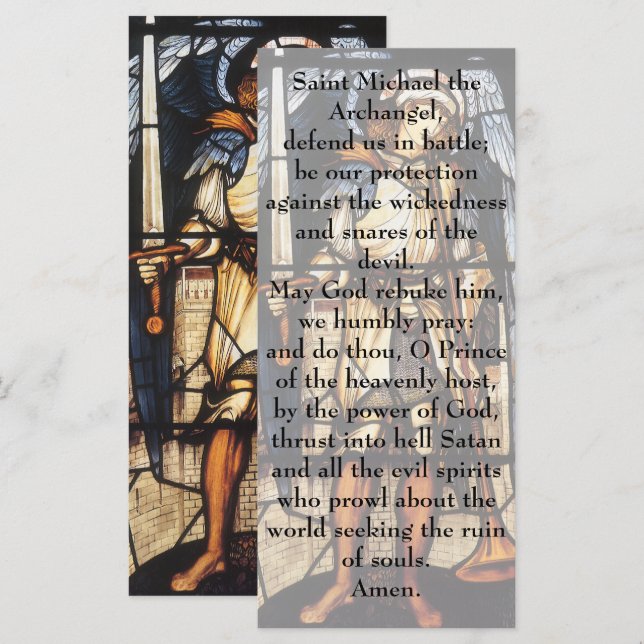 Saint Michael the
Archangel,
defend us in battle;
be our protection
against the wickedness
and snares of the
devil.
May God rebuke him,
we humbly pray:
and do thou, O Prince
of the heavenly host,
by the power of God,
thrust into hell Satan
and all the evil spirits
who prowl about the
world seeking the ruin
of souls.
Amen.